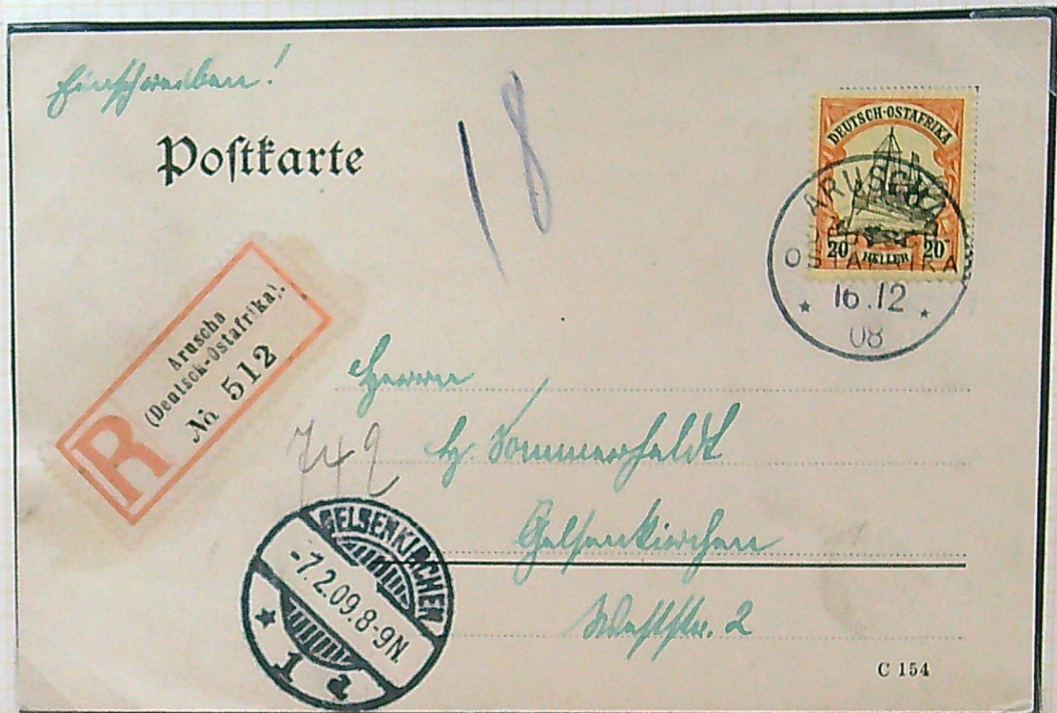 Einschreiben!
Postkarte
18
DEUTSCH-OSTAFRIKA
20 HELLER 20
ARUSCHA
OSTAFRIKA
16.12
08
Aruscha
(Deutsch-Ostafrika).
R No 512
Herrn
H. Sommerfeldt
742
Gelsenkirchen
Weststr. 2
GELSENKIRCHEN
-7.2.09.8-9N.
* 1 a
C 154